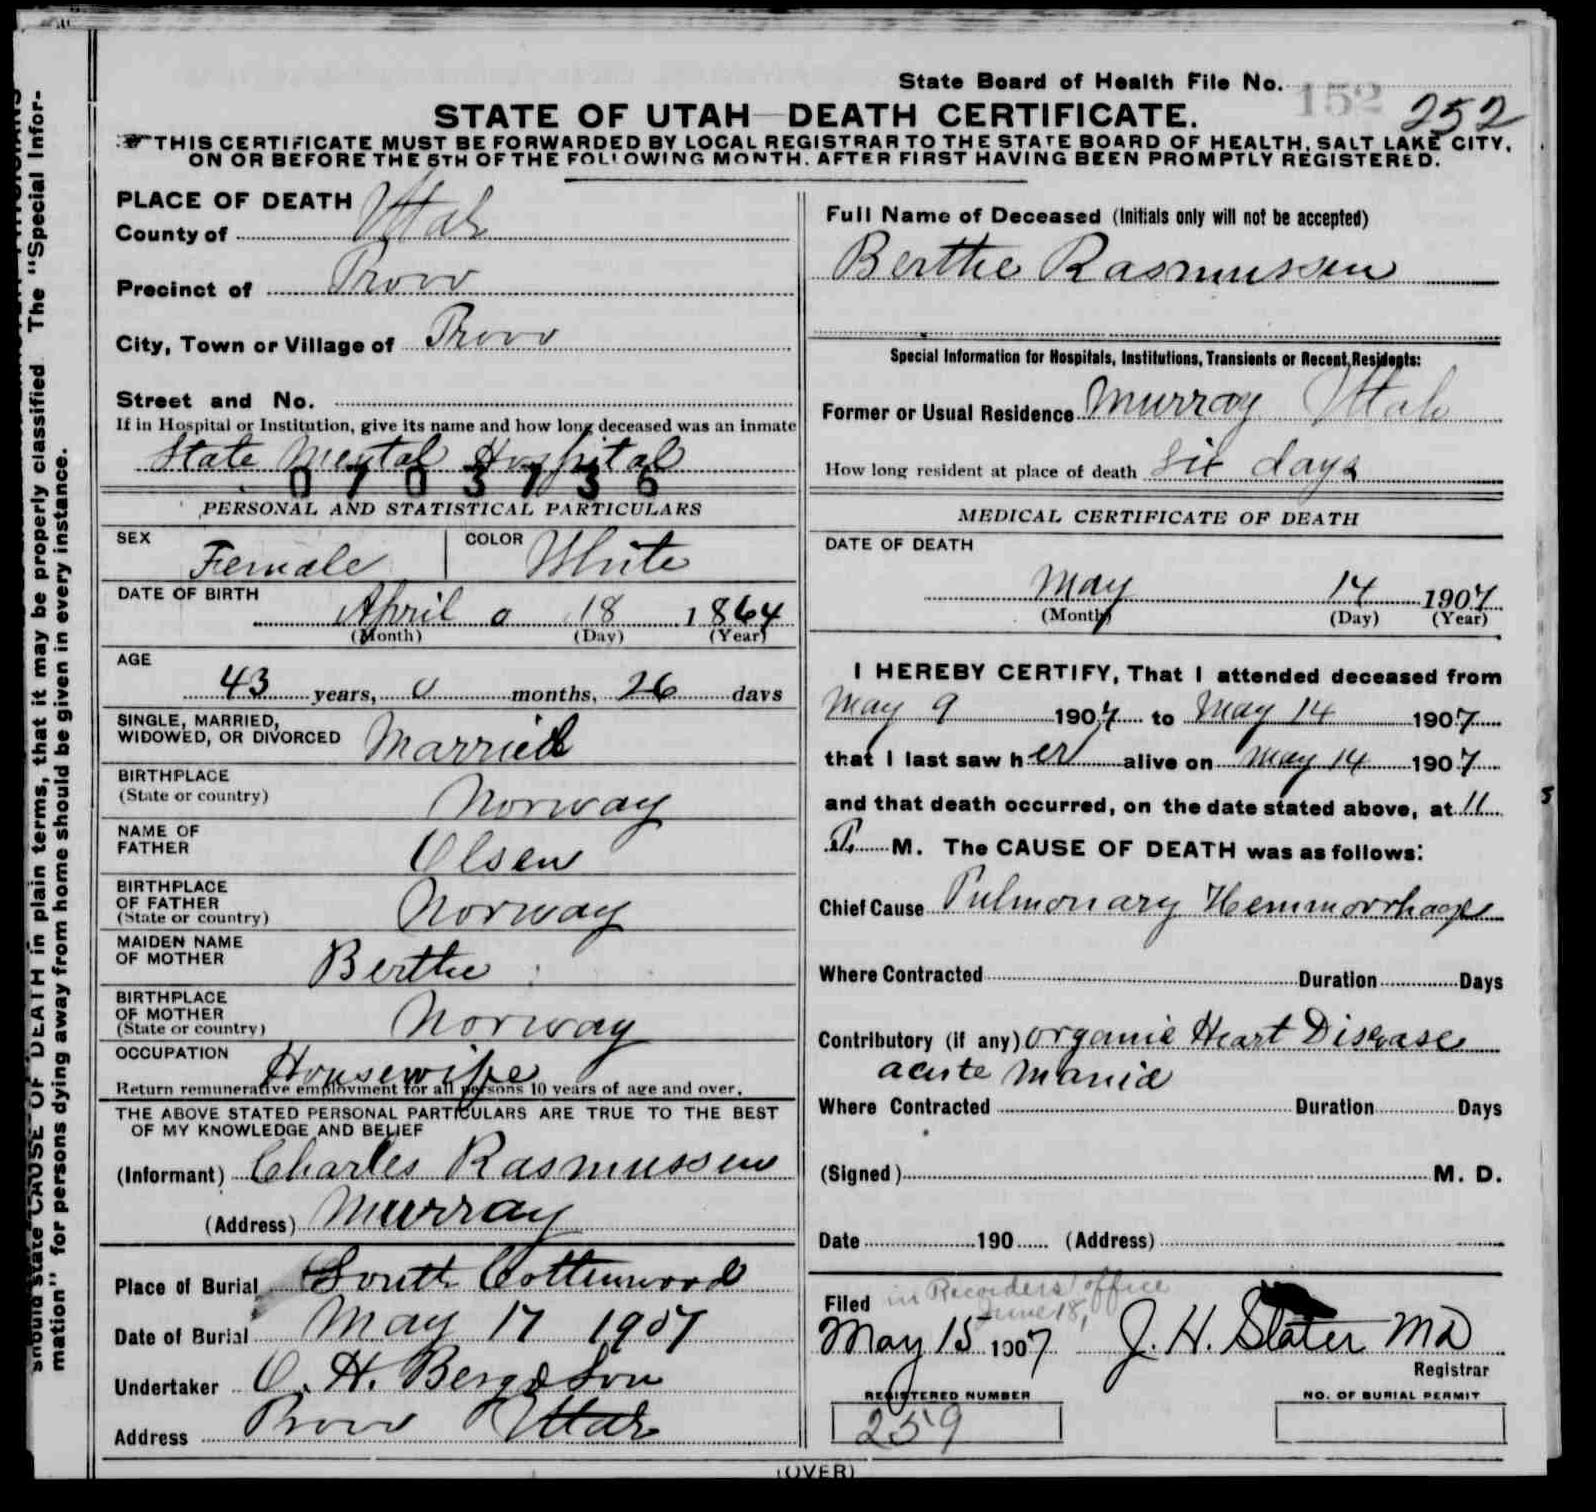 State Board of Health File No. 152 252
STATE OF UTAH—DEATH CERTIFICATE.
THIS CERTIFICATE MUST BE FORWARDED BY LOCAL REGISTRAR TO THE STATE BOARD OF HEALTH, SALT LAKE CITY,
ON OR BEFORE THE 5TH OF THE FOLLOWING MONTH, AFTER FIRST HAVING BEEN PROMPTLY REGISTERED.
should state CAUSE OF DEATH in plain terms, that it may be properly classified The "Special Infor-
mation" for persons dying away from home should be given in every instance.
PLACE OF DEATH
County of Utah
Precinct of Provo
City, Town or Village of Provo
Street and No.
If in Hospital or Institution, give its name and how long deceased was an inmate
State Mental Hospital
0703736
PERSONAL AND STATISTICAL PARTICULARS
SEX Female COLOR White
DATE OF BIRTH
April 18 1864
(Month) (Day) (Year)
AGE
43 years, 0 months, 26 days
SINGLE, MARRIED,
WIDOWED, OR DIVORCED Married
BIRTHPLACE
(State or country) Norway
NAME OF
FATHER Olsen
BIRTHPLACE
OF FATHER
(State or country) Norway
MAIDEN NAME
OF MOTHER Berthe
BIRTHPLACE
OF MOTHER
(State or country) Norway
OCCUPATION Housewife
Return remunerative employment for all persons 10 years of age and over.
THE ABOVE STATED PERSONAL PARTICULARS ARE TRUE TO THE BEST
OF MY KNOWLEDGE AND BELIEF
(Informant) Charles Rasmussen
(Address) Murray
Place of Burial South Cottenwood
Date of Burial May 17 1907
Undertaker O. H. Berg & Son
Address Provo Utah
Full Name of Deceased (Initials only will not be accepted)
Berthe Rasmussen
Special Information for Hospitals, Institutions, Transients or Recent Residents:
Former or Usual Residence Murray Utah
How long resident at place of death six days
MEDICAL CERTIFICATE OF DEATH
DATE OF DEATH
May 14 1907
(Month) (Day) (Year)
I HEREBY CERTIFY, That I attended deceased from
May 9 1907 to May 14 1907
that I last saw her alive on May 14 1907
and that death occurred, on the date stated above, at 11
P. M. The CAUSE OF DEATH was as follows:
Chief Cause Pulmonary Hemmorrhage
Where Contracted Duration Days
Contributory (if any) Organic Heart Disease
acute Mania
Where Contracted Duration Days
(Signed) M. D.
Date 190 (Address)
Filed in Recorders office
June 18,
May 15 1907 J. H. Slater MD
Registrar
REGISTERED NUMBER NO. OF BURIAL PERMIT
259
(OVER)